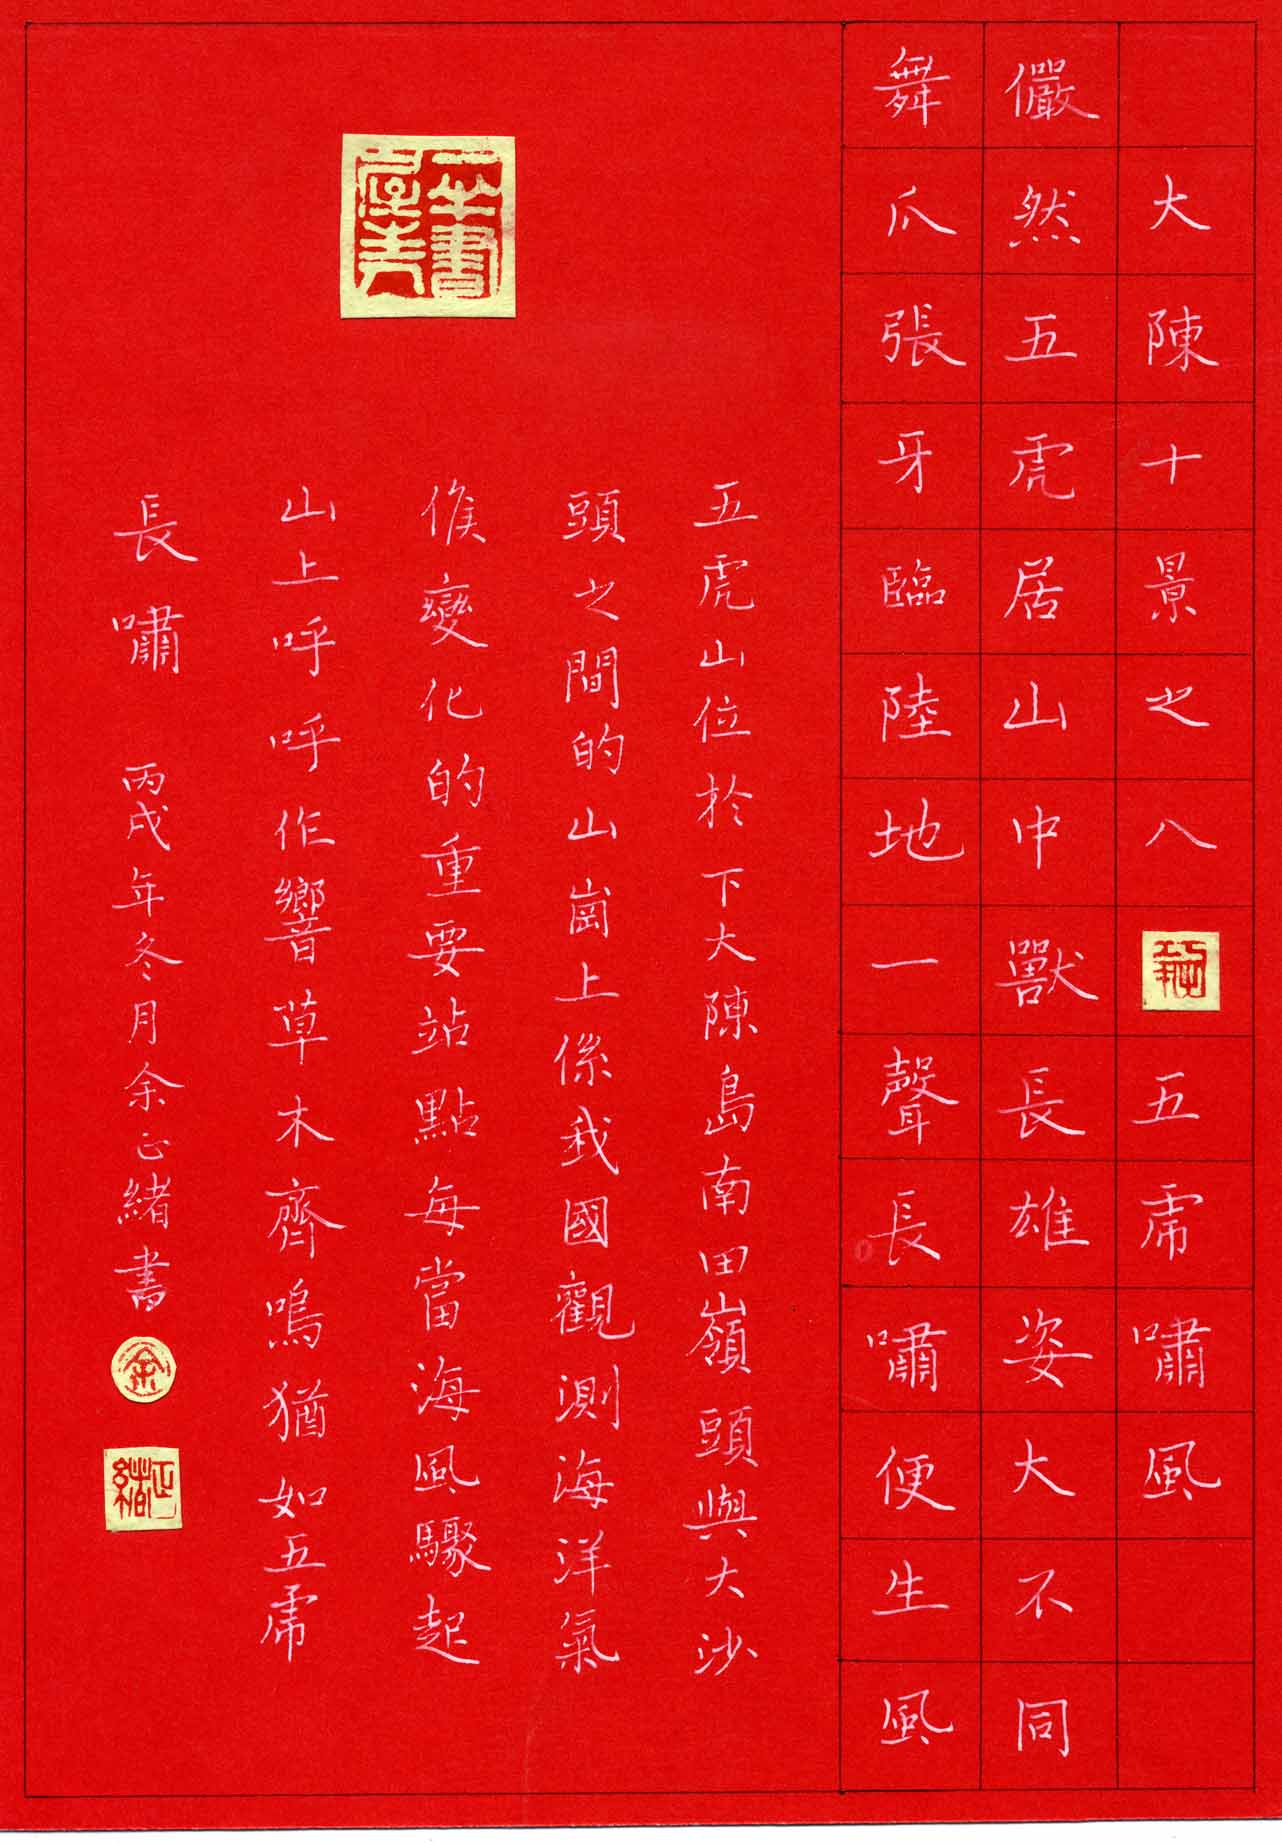 大陳十景之八 五虎嘯風
儼然五虎居山中獸長雄姿大不同
舞爪張牙臨陸地一聲長嘯便生風
五虎山位於下大陳島南田嶺頭與大沙
頭之間的山崗上係我國觀測海洋氣
候變化的重要站點每當海風驟起
山上呼呼作響草木齊鳴猶如五虎
長嘯 丙戌年冬月余正緒書